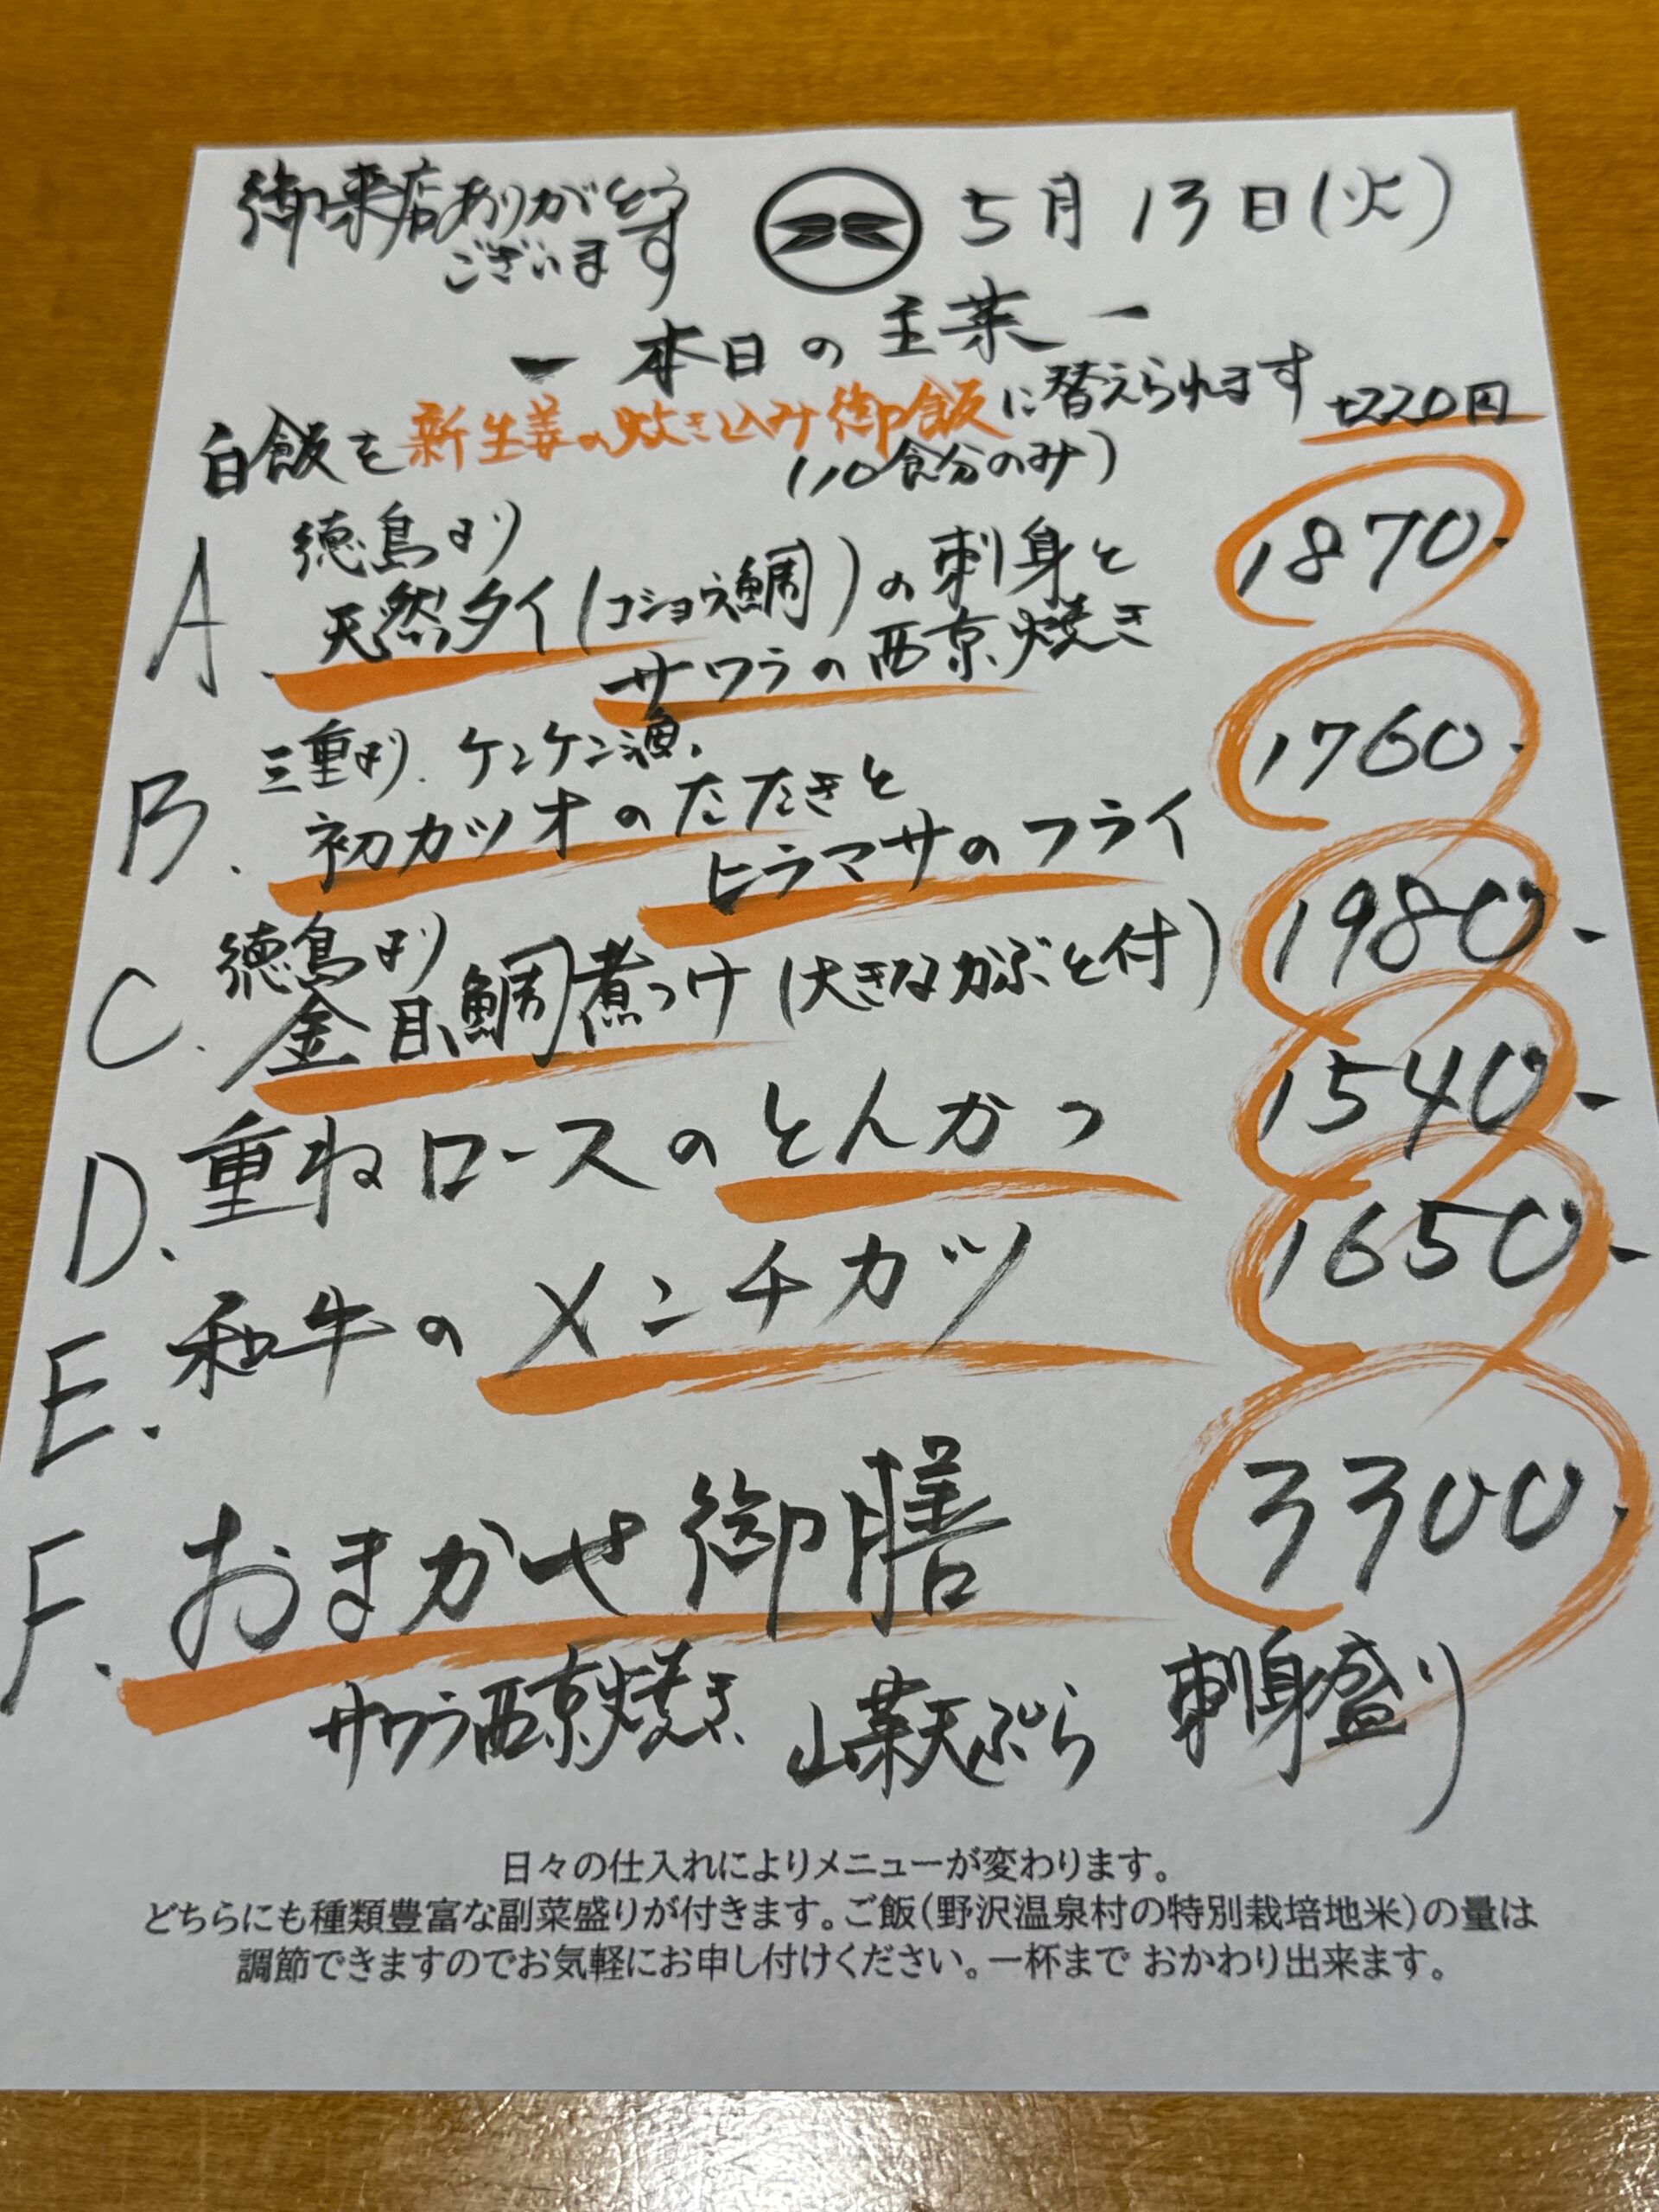 御来店ありがとう
ございます
5月13日(火)
ー本日の主菜ー
白飯を新生姜の炊き込み御飯に替えられます +220円
(10食分のみ)
A. 徳島より
天然タイ(コショウ鯛)の刺身と
サワラの西京焼き
1870.
B. 三重より、ケンケン漁、
初カツオのたたきと
ヒラマサのフライ
1760.
C. 徳島より
金目鯛煮つけ(大きなかぶと付)
1980-
D. 重ねロースのとんかつ 1540-
E. 和牛のメンチカツ 1650-
F. おまかせ御膳 3300.
サワラ西京焼き 山菜天ぷら 刺身盛り
日々の仕入れによりメニューが変わります。
どちらにも種類豊富な副菜盛りが付きます。ご飯(野沢温泉村の特別栽培地米)の量は
調節できますのでお気軽にお申し付けください。一杯まで おかわり出来ます。